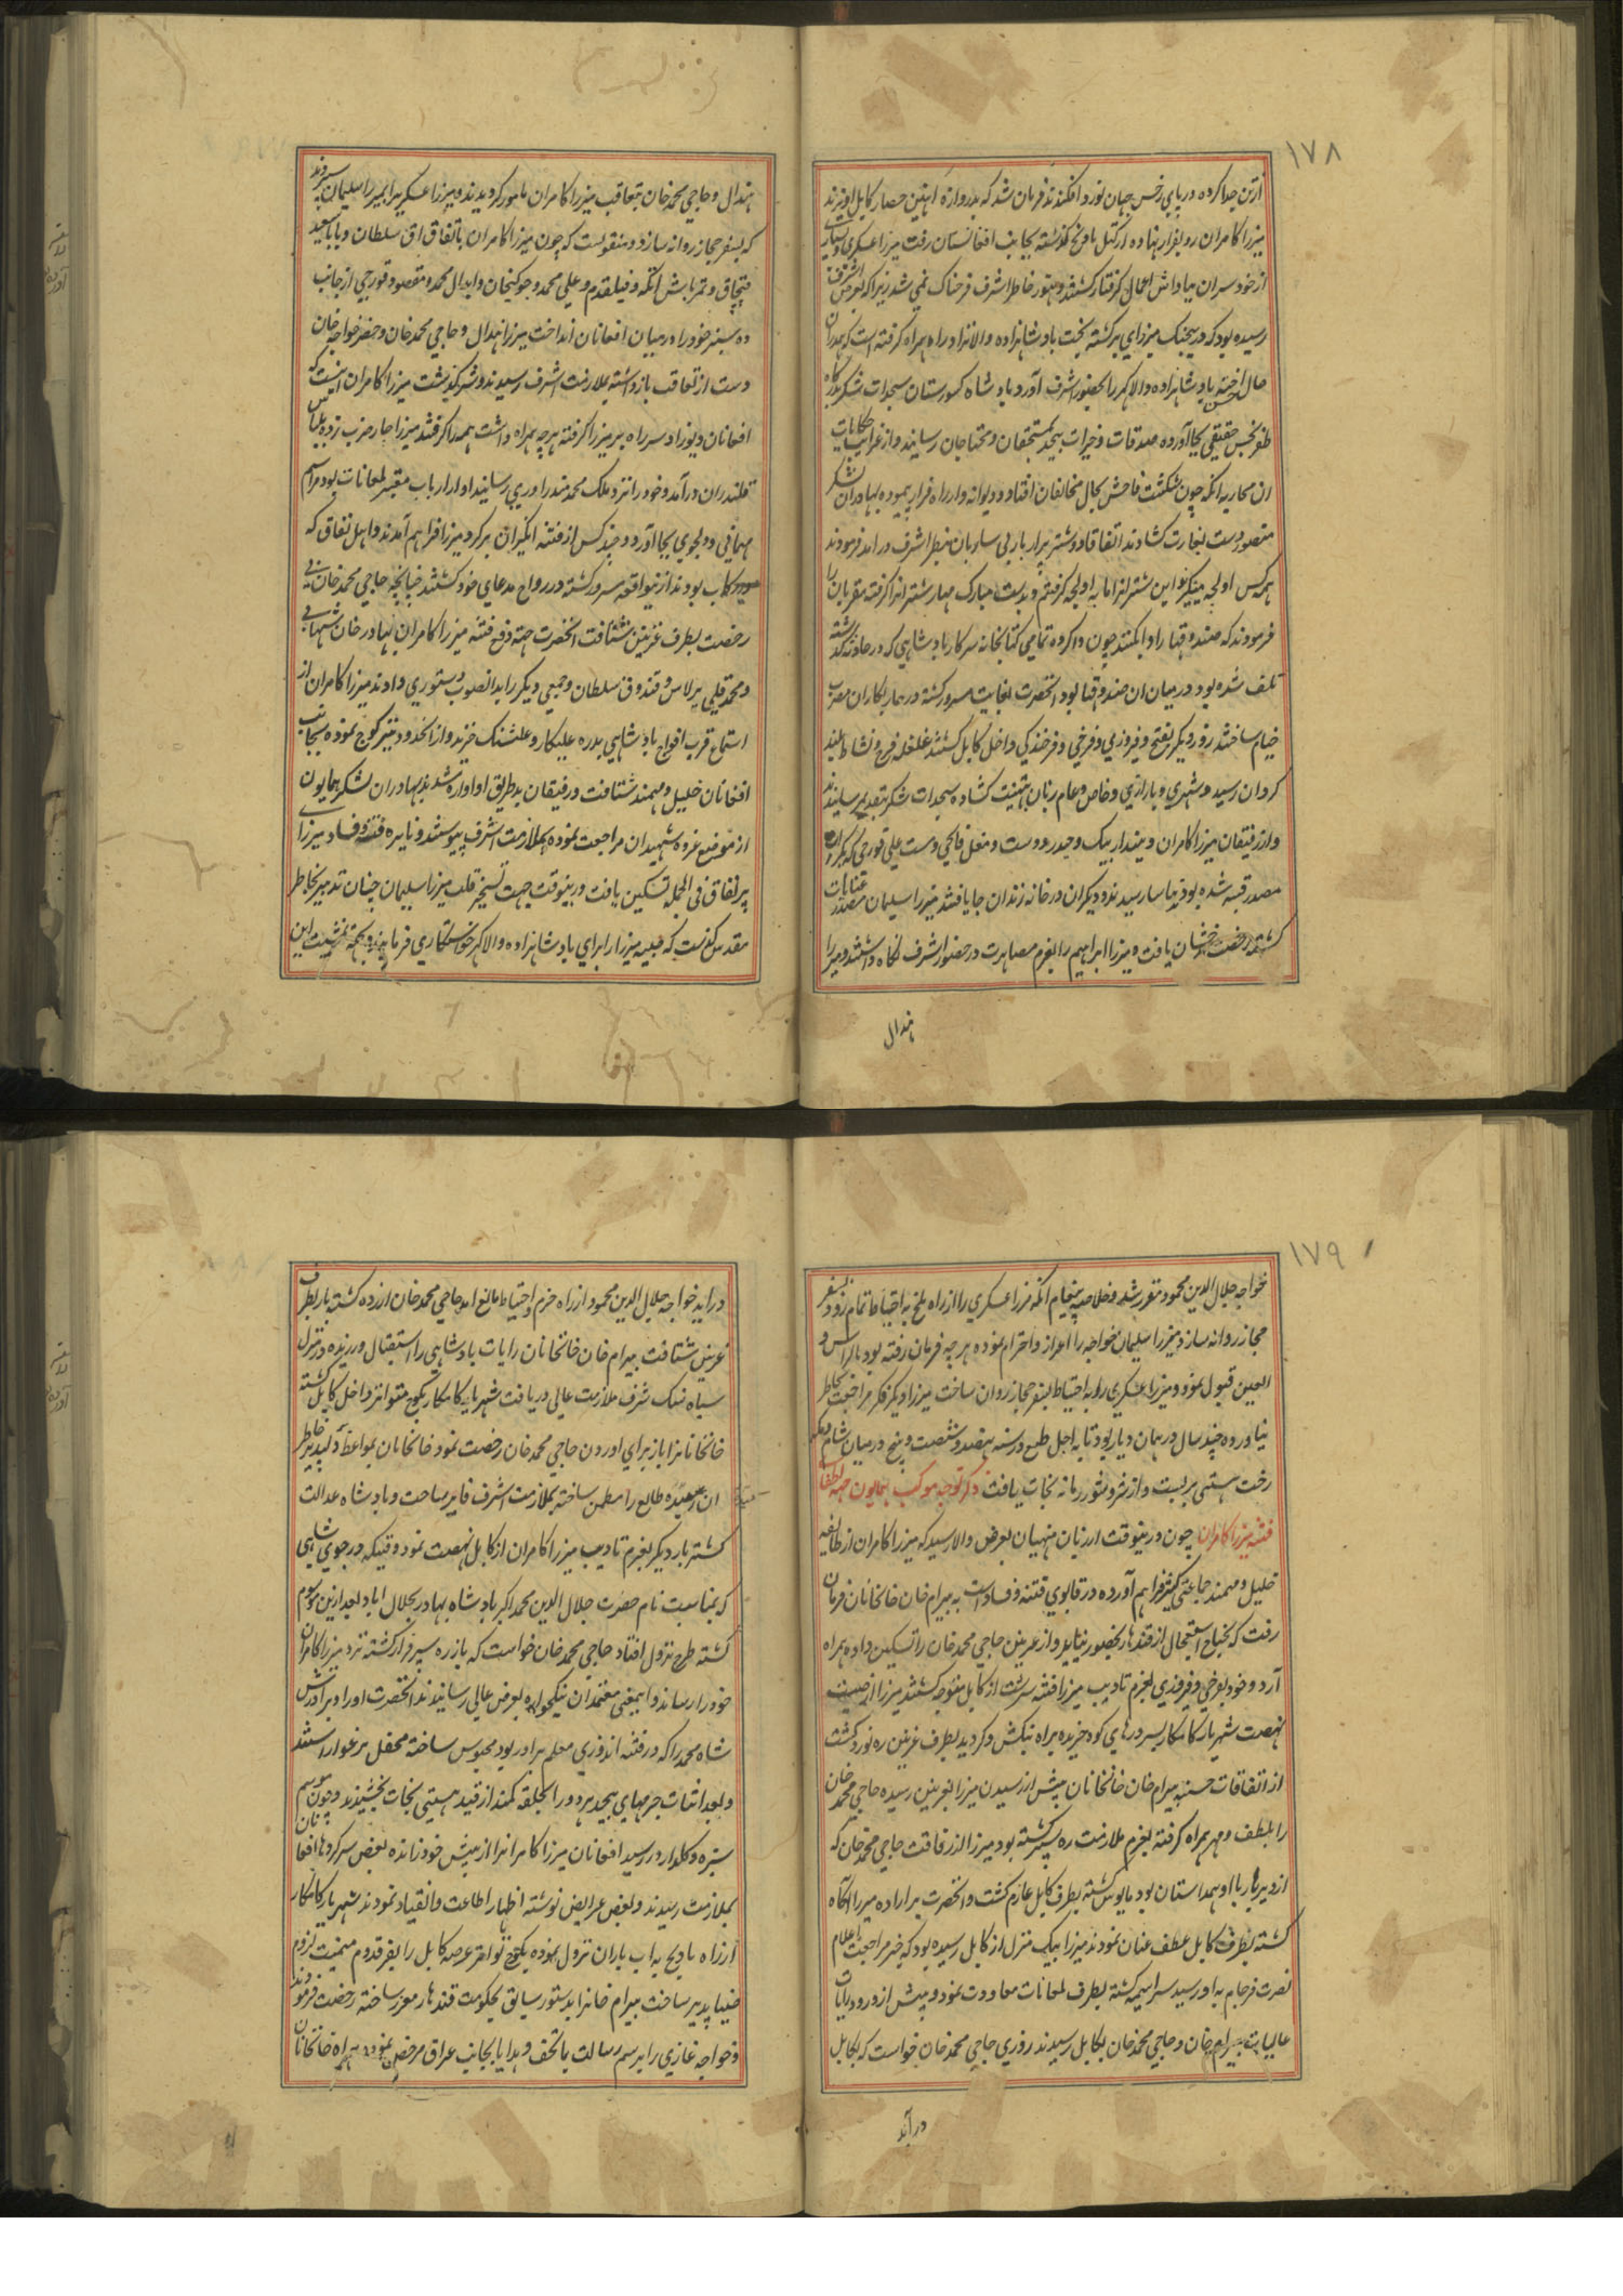 ١٧٨
ازتن جدا کرده در پای رخش جهان نورد افکندند فرمان شد که بدروازه اهنین حصار کابل اویزند
میرزا کامران رو بفرار نهاده از کتل بجانب افغانستان رفت میرزا عسکری و بسیاری
از خود سران بپاداش اعمال گرفتار گشتند و هنوز خاطر اشرف فرحناک نمی شد زیرا که بعرض اشرف
رسیده بود که در جنگ میرزای برگشته بخت بادشاهزاده والانژاد را همراه گرفته است که همدران
حال حسن اخته بادشاهزاده والاگهر را بحضور اشرف آورد بادشاه سجدات شکر بدرگاه
ظفر بخش حقیقی بجا آورده صدقات و خیرات بیحد بمستحقان و محتاجان رسانید و از غرایب حکایات
ان محاربه انکه چون شکست فاحش بحال مخالفان افتاد و دیوانه وار راه فرار پیموده بهادران لشکر
منصور دست بغارت کشادند اتفاقا دو شتر پربار بی ساربان بنظر اشرف درامد فرمودند
همه کس اولجه میگیرند این شتران را ما به اولجه گرفتیم و بدست مبارک مهار شتران را گرفته مقربان را
فرمودند که صندوقها را وا بکنند چون وا کرده تمامی کتابخانه سرکار بادشاهی که در حادثه گذشته
تلف شده بود در میان ان صندوقها بود انحضرت بغایت مسرور گشته در همان مضرب
خیام ساختند روز دیگر بفتح و فیروزی و فرخی و فرخندگی داخل کابل گشتند غلغله فرح و نشاط بلند
گردان رسید و شهری و بازاری و خاص و عام زبان بتهنیت کشاده سجدات شکر بتقدیم رسانیدند
و از رفیقان میرزا کامران دیندار بیک و حیدر دوست و مغل قانجی و مست علی قورچی که بکرات
مصدر فتنه شده بودند بیاسا رسیدند و دیگران در خانه زندان جا یافتند میرزا سلیمان مصدر عنایات
گشته رخصت بدخشان یافت و میرزا ابراهیم را بعزم مصاهرت در حضور اشرف نگاه داشتند و میرزا
هندال
هندال و حاجی محمد خان بتعاقب میرزا کامران مامور گردیدند و میرزا عسکری را بمیرزا سلیمان سپردند
که بسفر حجاز روانه سازد و منقولست که چون میرزا کامران باتفاق اق سلطان و بابا سعید
قبچاق و تمرتاش اتکه و قتلقدم و علی محمد و جوکیخان و ابدال محمد و مقصود قورچی از جانب
ده سبز خود را درمیان افغانان انداخت میرزا هندال و حاجی محمد خان و خضر خواجه خان
دست از تعاقب بازداشته بملازمت اشرف رسیدند و سرگذشت میرزا کامران اینست که
افغانان دیوزاد سر راه بر میرزا گرفته هرچه همراه داشت همه را گرفتند میرزا چار ضرب زده بلباس
قلندران درآمد و خود را نزد ملک محمد مندراوری رسانید او از ارباب معتبر لمغانات بود مراسم
مهمانی و دلجوی بجا آورد و چند کس از فتنه انگیزان بر گرد میرزا فراهم آمدند و اهل نفاق که
در رکاب بودند ازینواقعه مسرور گشته در رواج مدعای خود گشتند چنانچه حاجی محمد خان بی
رخصت بطرف غزنین شتافت انحضرت جهة دفع فتنه میرزا کامران بهادر خان شیبانی
و محمد قلی برلاس و قندوق سلطان و جمعی دیگر را بدانصوب دستوری دادند میرزا کامران از
استماع قرب افواج بادشاهی بدره علیکار و علیشنک خزید و از انحدود نیز کوچ نموده بجانب
افغانان خلیل و مهمند شتافت و رفیقان بدطریق او اواره شدند بهادران لشکر همایون
از موضع غزوه شهیدان مراجعت نموده بملازمت اشرف پیوستند و نایره فتنه و فساد میرزای
پر نفاق فی الجمله تسکین یافت درینوقت جهت تسخیر قلب میرزا سلیمان چنان تدبیر بخاطر
مقدس گذشت که صبیه میرزا را برای بادشاهزاده والاگهر خواستگاری فرمایند و بجهة تمشیت این
١٧٩
خواجه جلال الدین محمود مقرر شد و خلاصه پیغام انکه میرزا عسکری را از راه بلخ به احتیاط تمام زود بسفر
حجاز روانه سازد میرزا سلیمان خواجه را اعزاز و احترام نموده هرچه فرمان رفته بود بالراس و
العین قبول نمود و میرزا عسکری را به احتیاط بسفر حجاز روان ساخت میرزا دیگر فکر مراجعت بخاطر
نیاورده چند سال در همان دیار بود تا به اجل طبعی در سنه نهصد و شصت و پنج درمیان شام و مکه
رخت هستی بربست و از شر و شور زمانه نجات یافت ذکر توجه موکب همایون جهة اطفای
فتنه میرزا کامران چون درینوقت از زبان منهیان بعرض والا رسید که میرزا کامران از طایفه
خلیل و مهمند جماعتی کثیر فراهم آورده در قابوی فتنه و فساد است به بیرام خان خانخانان فرمان
رفت که بجناح استعجال از قندهار بحضور بیاید و از غزنین حاجی محمد خان را تسکین داده همراه
آرد و خود بفرخی و فیروزی بعزم تادیب میرزا فتنه سرشت از کابل متوجه گشتند میرزا از صیت
نهضت شهریار کامکار بسر درهای کوه خزیده براه بنکش و کردیز بطرف غزنین ره نورد گشت
از اتفاقات حسنه بیرام خان خانخانان پیش از رسیدن میرزا بغزنین رسیده حاجی محمد خان
را بلطف و مهر همراه گرفته بعزم ملازمت ره سپر گشته بود میرزا از رفاقت حاجی محمد خان که
از دیر باز با او همداستان بود مایوس گشته بطرف کابل عازم گشت و انحضرت بر اراده میرزا آگاه
گشته بطرف کابل عطف عنان نمودند میرزا بیک منزل از کابل رسیده بود که خبر مراجعت اعلام
نصرت فرجام به او رسید سراسیمه گشته بطرف لمغانات معاودت نمود و پیش از ورود رایات
عالیات بیرام خان و حاجی محمد خان بکابل رسیدند روزی حاجی محمد خان خواست که بکابل
درآید
درآید خواجه جلال الدین محمود از راه حزم و احتیاط مانع امد حاجی محمد خان ازرده گشته باز بطرف
غزنین شتافت بیرام خان خانخانان رایات بادشاهی را استقبال ورزیده در منزل
سیاه سنک شرف ملازمت عالی دریافت شهریار کامکار بکوچ متواتر داخل کابل گشته
خانخانان را باز برای اوردن حاجی محمد خان رخصت نمود خانخانان بمواعظ دلپذیر خاطر
ان رمیده طالع را مطمن ساخته بملازمت اشرف فایز ساخت و بادشاه عدالت
گستر بار دیگر بعزم تادیب میرزا کامران از کابل نهضت نمود وقتیکه در جوی شاهی
که بمناسبت نام حضرت جلال الدین محمد اکبر بادشاه بهادر بجلال اباد بعد ازین موسوم
گشته طرح نزول افتاد حاجی محمد خان خواست که باز ره سپر فرار گشته نزد میرزا کامران
خود را رساند و اینمعنی معتمدان نیکخواه بعرض عالی رسانیدند انحضرت او را و برادرش
شاه محمد را که در فتنه اندوزی معلم برادر بود محبوس ساخته محفل برغو اراستند
و بعد اثبات جرمهای بیحد هر دو را بحلقه کمند از قید هستی نجات بخشیدند و چون موسم
سبزه و گلزار در رسید افغانان میرزا کامرانرا از پیش خود رانده بعض سرکردهای افغانان
بملازمت رسیدند و بعض عرایض نوشته اظهار اطاعت و انقیاد نمودند شهریار کامکار
از راه بادپج به اب باران نزول نموده بکوچ متواتر عرصه کابل را بفر قدوم میمنت لزوم
ضیاپذیر ساخت بیرام خانرا بدستور سابق بحکومت قندهار معزز ساخته رخصت فرمودند
و خواجه غازی را برسم رسالت با تحف و هدایا بجانب عراق مرخص نموده همراه خانخانان